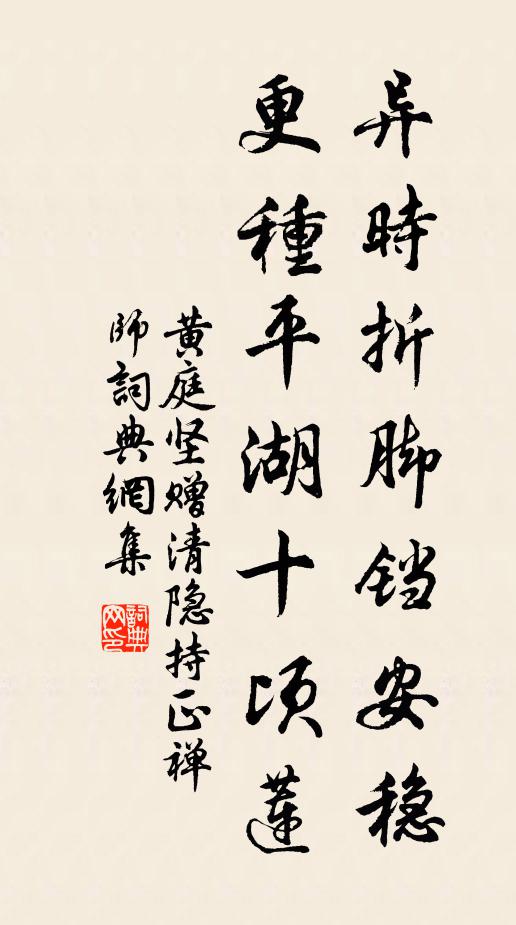 异時折脚铛安稳
更種平湖十頃蓮
黄庭坚赠清隐持正禅
師詞典網集
詞典网印